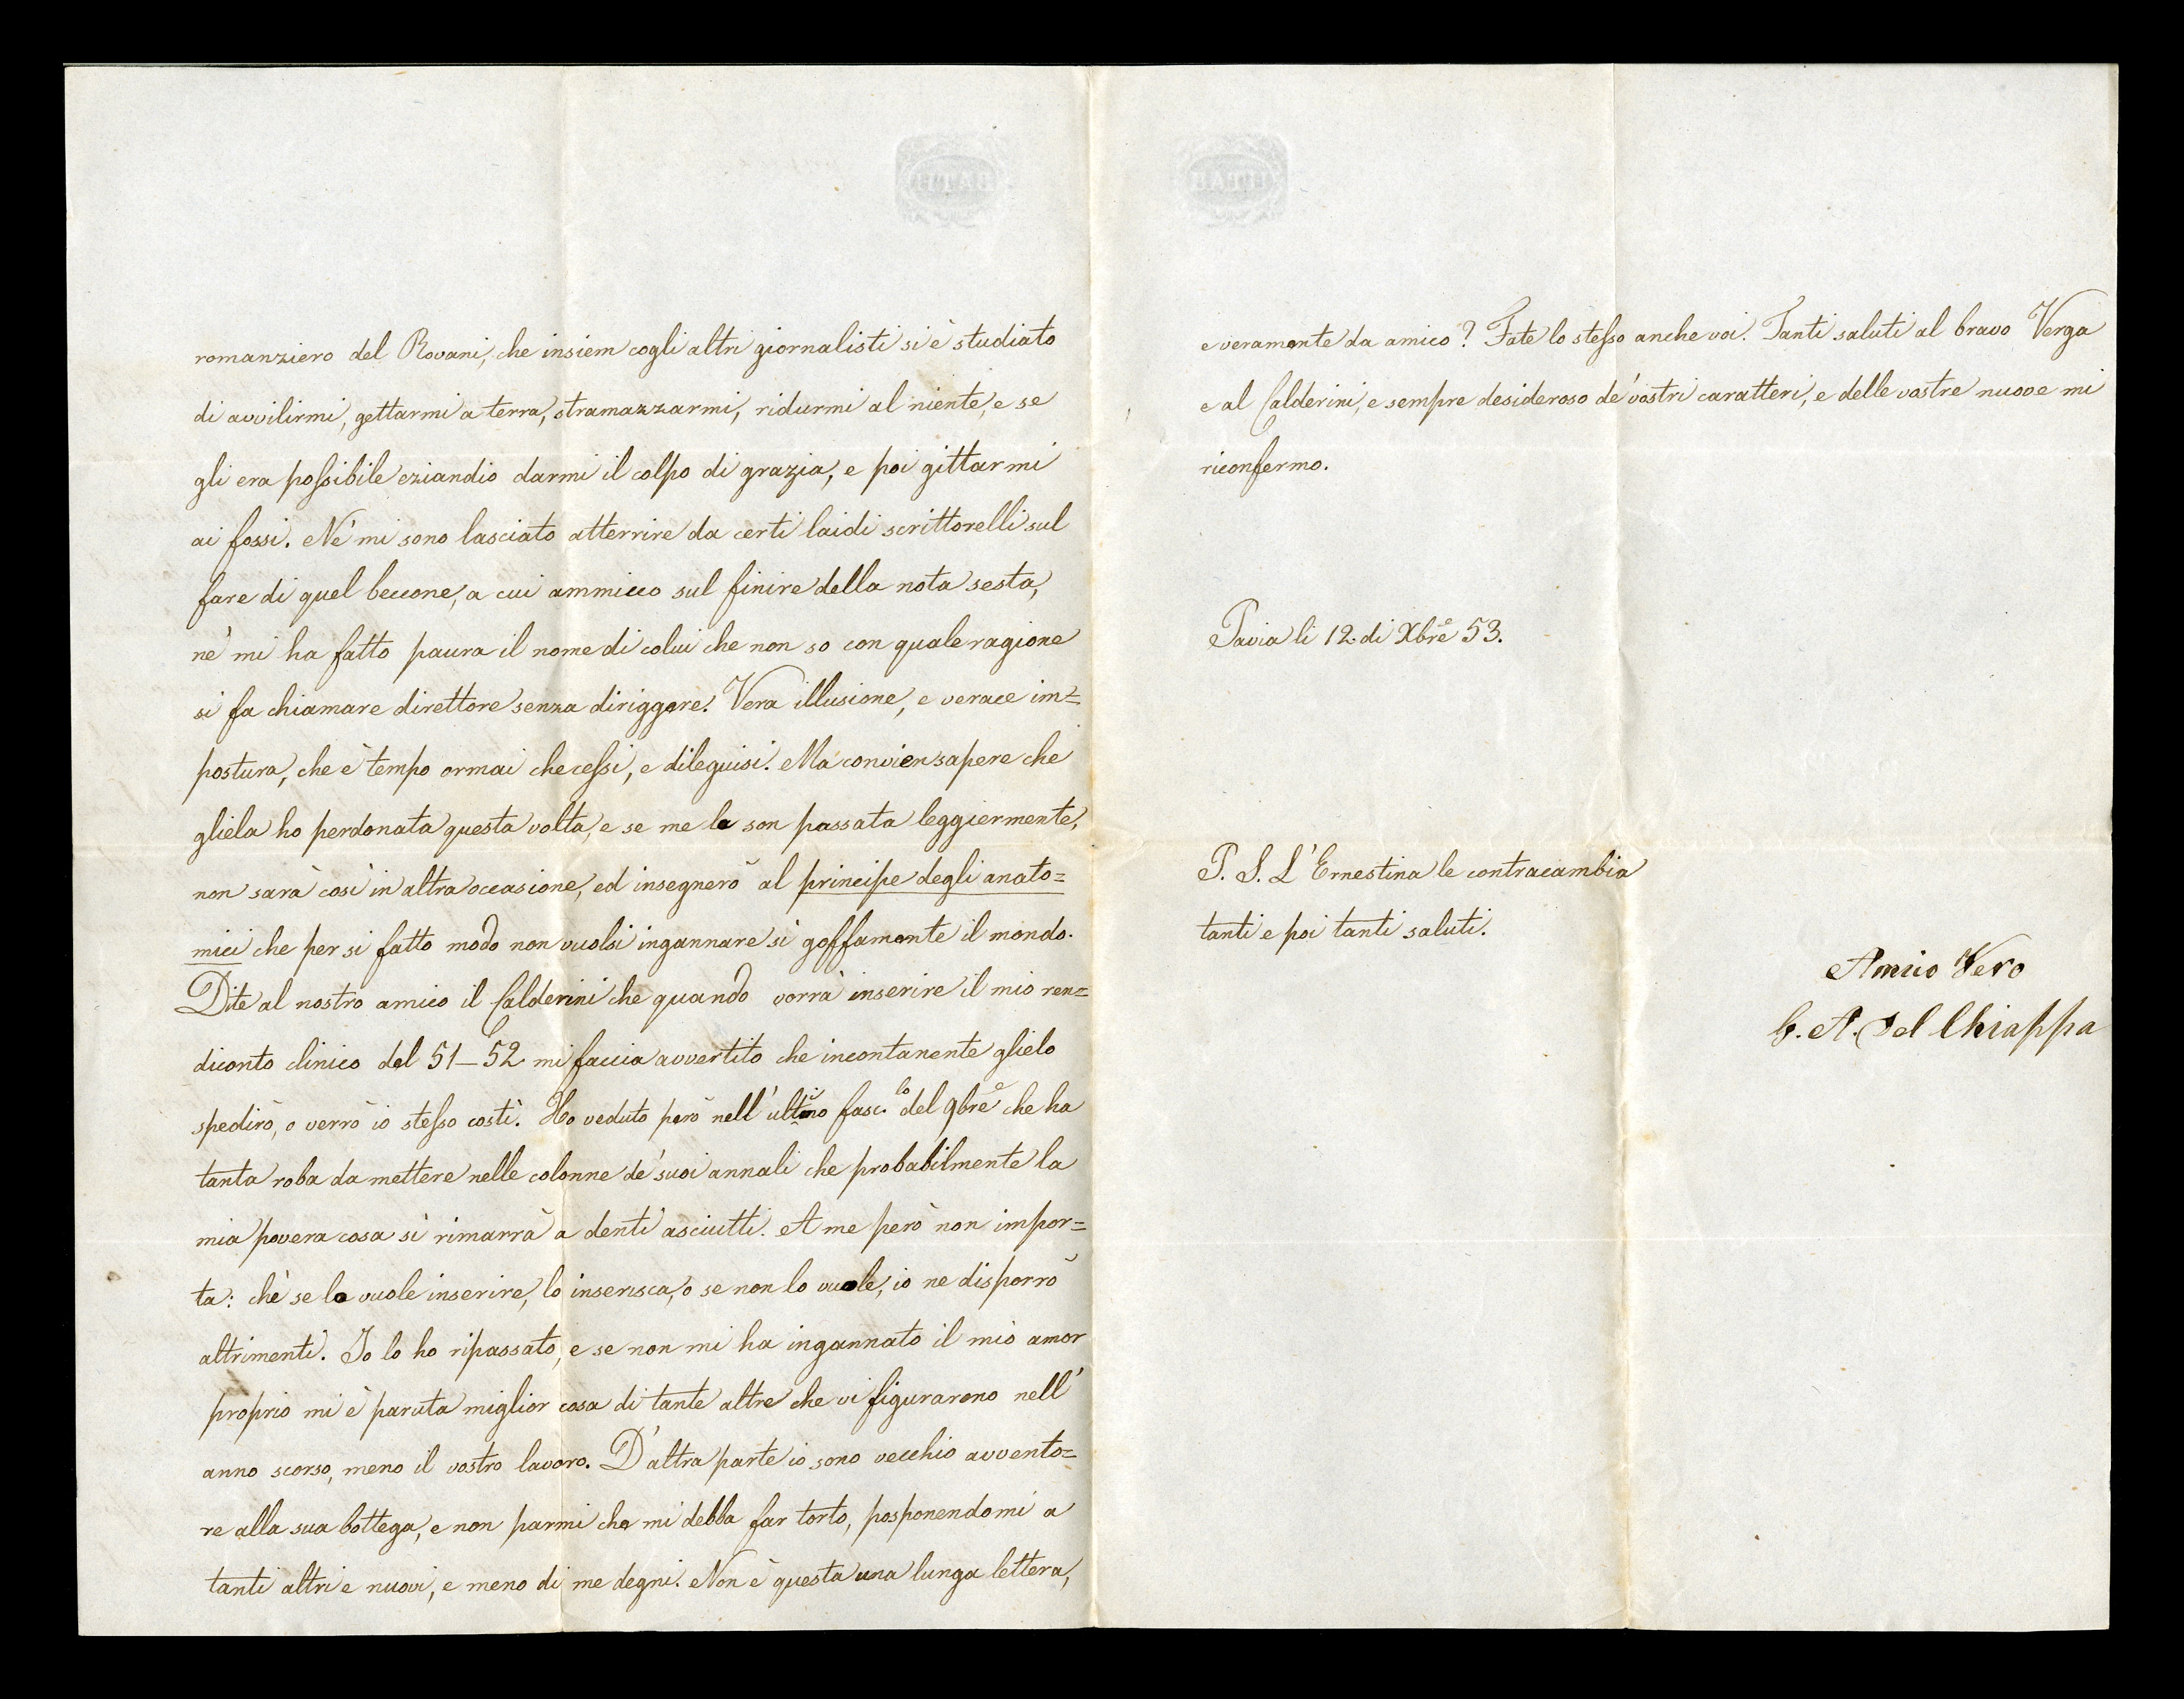 romanziero del Rovani, che insiem cogli altri giornalisti si è studiato
di avvilirmi, gettarmi a terra, stramazzarmi, ridurmi al niente, e se
gli era possibile eziandio darmi il colpo di grazia, e poi gittarmi
ai fossi. Nè mi sono lasciato atterrire da certi laidi scrittorelli sul
fare di quel beccone, a cui ammicco sul finire della nota sesta,
nè mi ha fatto paura il nome di colui che non so con quale ragione
si fa chiamare direttore senza diriggere. Vera illusione, e verace im=
postura, che è tempo ormai che cessi, e dileguisi. Ma convien sapere che
gliela ho perdonata questa volta, e se me la son passata leggiermente,
non sarà così in altra occasione, ed insegnerò al principe degli anato=
mici che per si fatto modo non vuolsi ingannare sì goffamente il mondo.
Dite al nostro amico il Calderini che quando vorrà inserire il mio ren=
diconto clinico del 51–52 mi faccia avvertito che incontanente glielo
spedirò, o verrò io stesso costì. Ho veduto però nell'ultimo fasc.lo del 9bre che ha
tanta roba da mettere nelle colonne de' suoi annali che probabilmente la
mia povera cosa si rimarrà a denti asciutti. A me però non impor=
ta: chè se lo vuole inserire, lo inserisca, o se non lo vuole, io ne disporrò
altrimenti. Io lo ho ripassato, e se non mi ha ingannato il mio amor
proprio mi è paruta miglior cosa di tante altre che vi figurarono nell'
anno scorso, meno il vostro lavoro. D'altra parte io sono vecchio avvento=
re alla sua bottega, e non parmi che mi debba far torto, posponendomi a
tanti altri e nuovi, e meno di me degni. Non è questa una lunga lettera,
e veramente da amico? Fate lo stesso anche voi. Tanti saluti al bravo Verga
e al Calderini, e sempre desideroso de' vostri caratteri, e delle vostre nuove mi
riconfermo.
Pavia li 12. di Xbre 53.
P. S. L'Ernestina le contracambia
tanti e poi tanti saluti.
Amico Vero
G. A. Del Chiappa